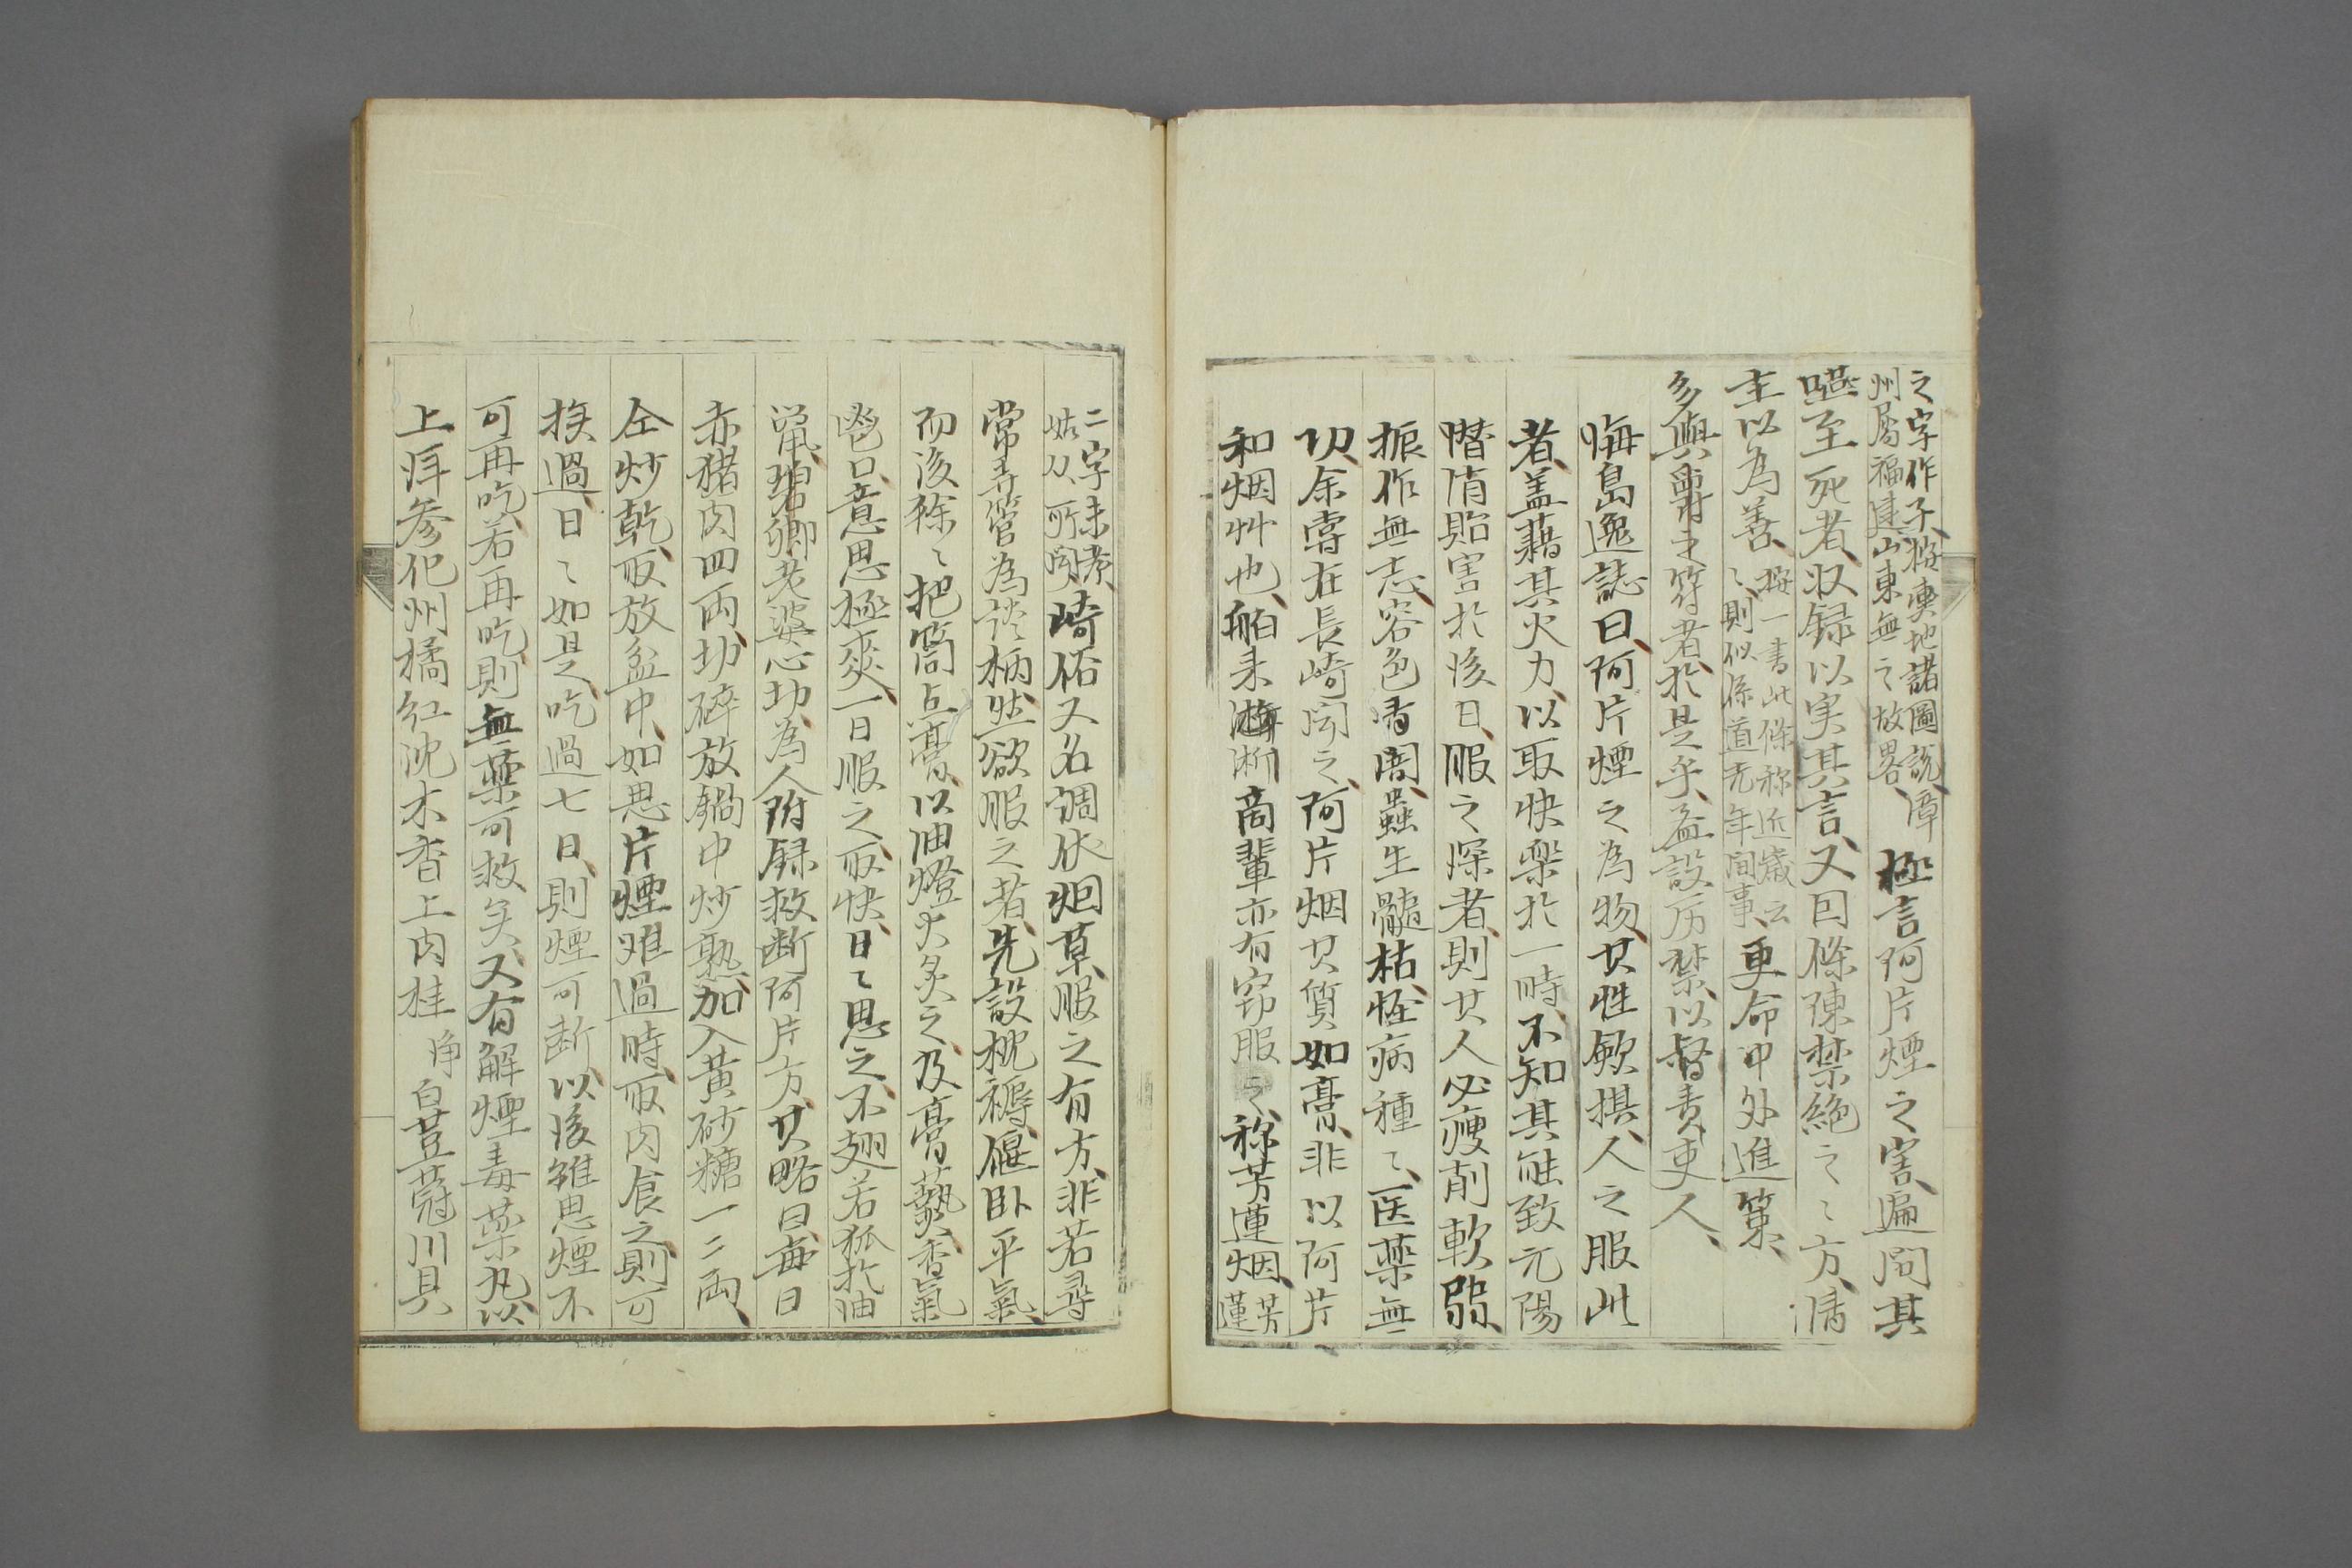 之字作子、按輿地諸圖説、漳
州属福建、山東無之、故畧、
極言阿片煙之害、遍問其
嗑至死者、収録以実其言、又回條陳禁絶之〻方、清
主以為善、
按一書此條称近歳云
〻、則似係道光年間事、
更命中外進策、
多與爵之符者、於是乎、益設厉禁、以督責吏人、
海島逸誌曰、阿片煙之為物、其性歛損、人之服此
者、盖藉其火力、以取快樂於一時、不知其能致元陽
暗惰貽害於後日、服之深者、則其人必痩削軟弱、
振作無志、容色青闇、蟲生髓枯、怪病種〻、医薬無
功、余嘗在長崎聞之、阿片烟其質如膏、非以阿片
和烟艸也、舶来浙商輩亦有窃服之、称芳蓮烟、
芳
蓮
二字未考、
姑从所聞、
崎俗又名調伏烟草、服之有方、非若尋
常弄管為談柄、然欲服之者、先設枕褥、偃卧平氣、
而後徐〻把筒点膏、以油燈火炙之、及膏爇、香氣
鬯口、意思極爽、一日服之取快、日〻思之、不翅若狐於油
鼠、碧卿老婆心切為人附録救断阿片方、其略曰、毎日
赤猪肉四両、切碎放鍋中炒熟、加入黄砂糖一二両、
仝炒乾、取放盆中、如思片煙难過時、取肉食之、則可
挨過、日〻如是、吃過七日、則煙可断、以後雖思煙不
可再吃、若再吃則無藥可救矣、又有解煙毒薬丸、以
上拝参化州橘紅沈木香上肉桂浄白荳蔻川貝